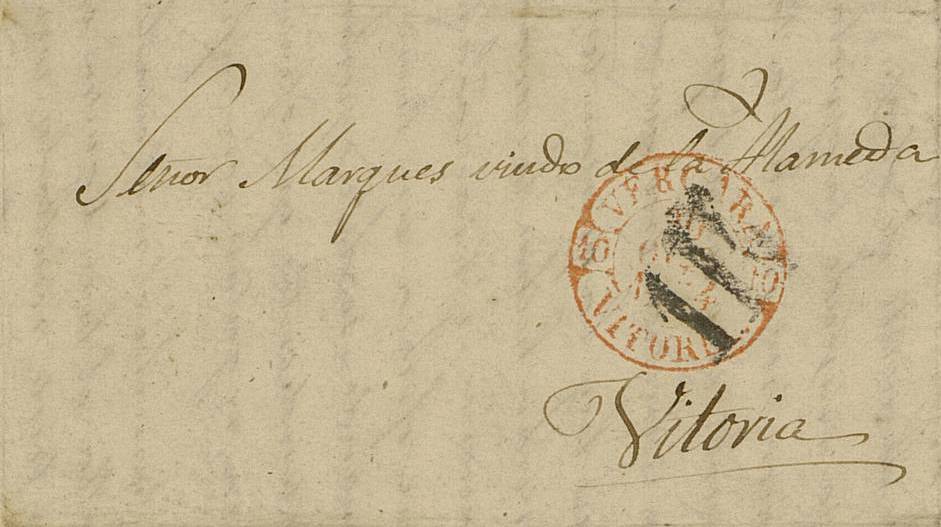 Señor Marques viudo de la Alameda
VERGARA
10 10
VITORIA.
Vitoria